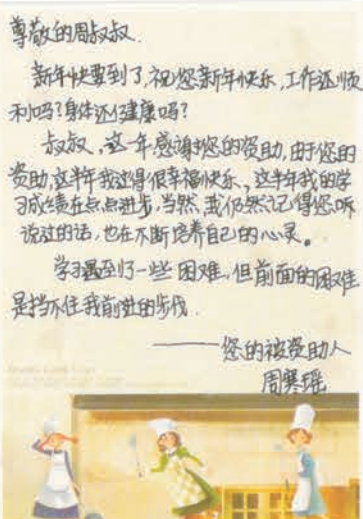 尊敬的周叔叔.
新年快要到了,祝您新年快乐,工作还顺
利吗?身体还健康吗?
叔叔,这一年感谢您的资助,由于您的
资助,这半年我过得很幸福快乐、这半年我的学
习成绩在点点进步,当然,我仍然记得您所
说过的话,也在不断培养自己的心灵。
学习遇到了一些困难,但前面的困难
是挡不住我前进的步伐.
——您的被资助人
周寒瑶